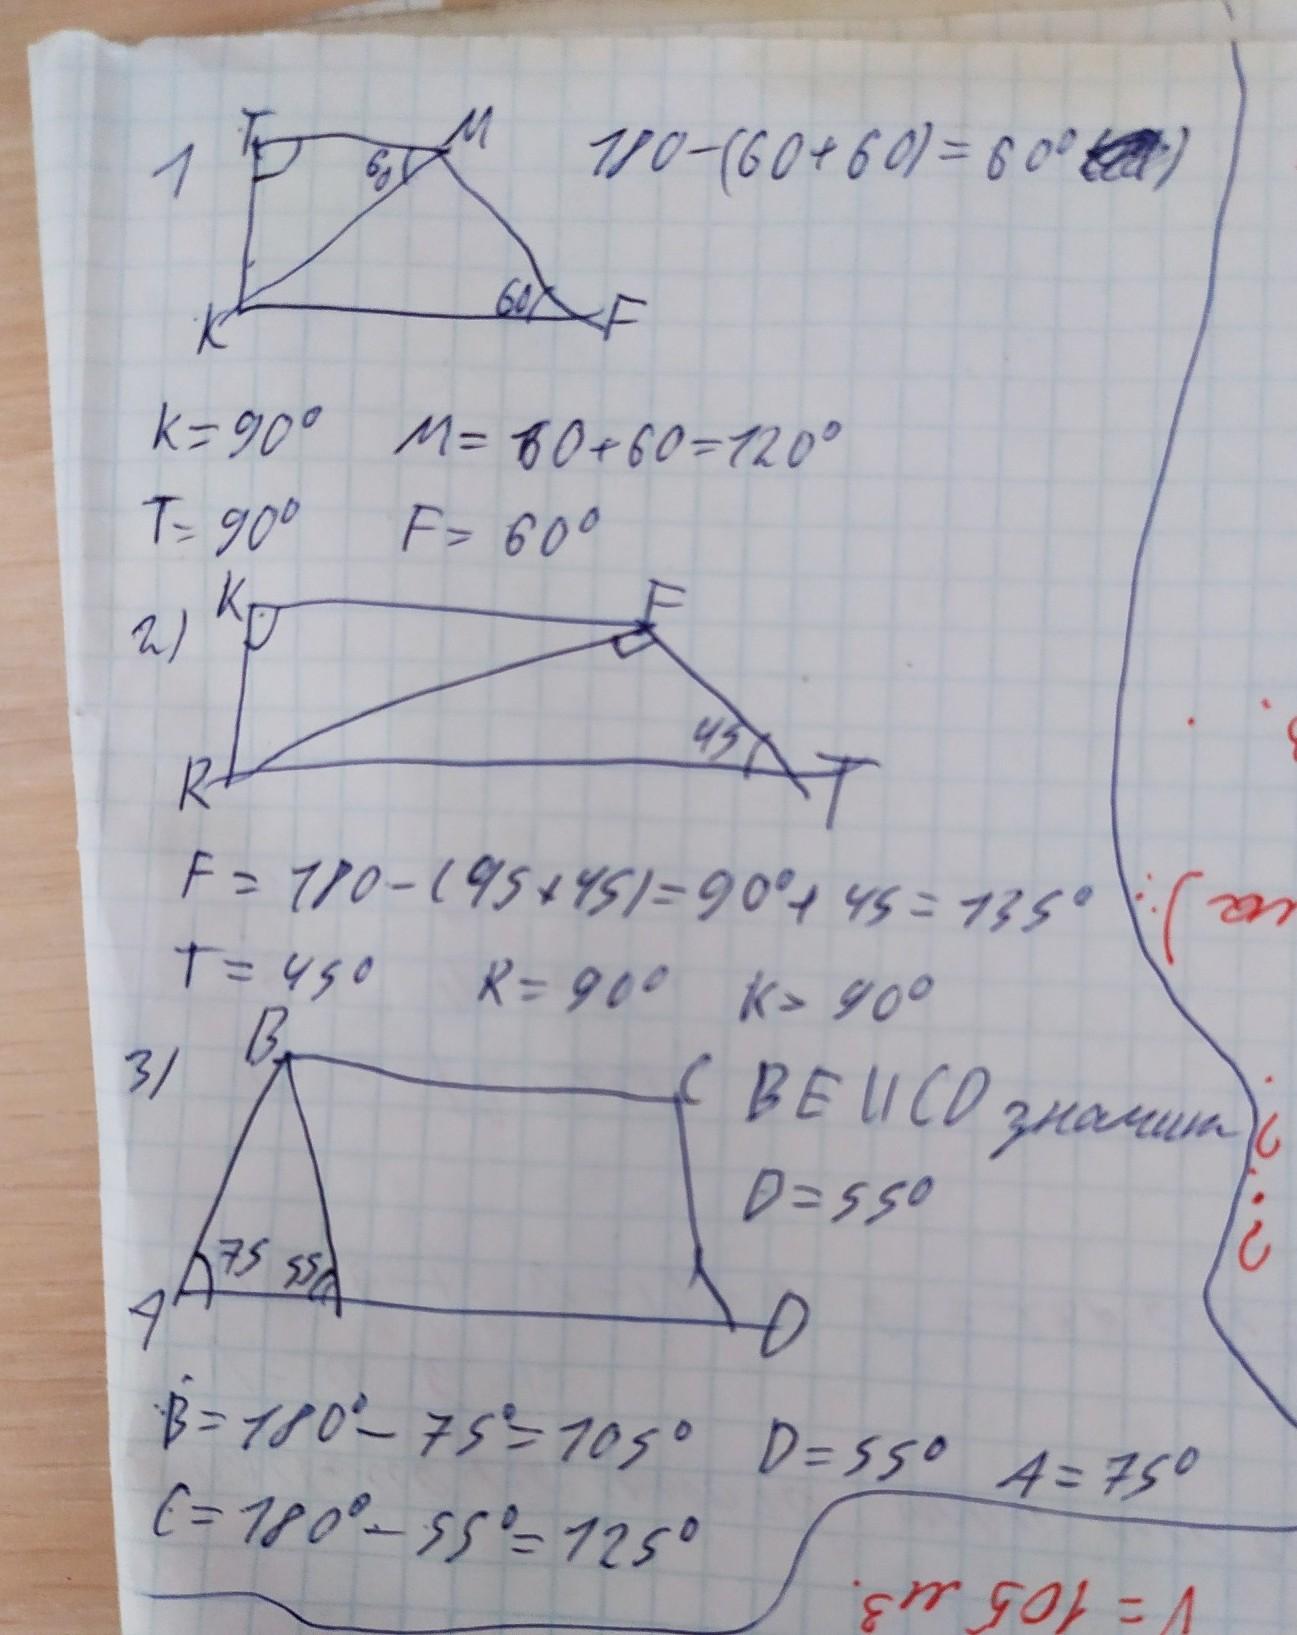 1 T M 180-(60+60)=60°
60
60
K F
K=90° M=60+60=120°
T=90° F=60°
2) K F
45
R T
F=180-(45+45)=90°+45=135°
T=45° R=90° K=90°
3) B C BE||CD значит
D=55°
75 55
A D
B=180°-75°=105° D=55° A=75°
C=180°-55°=125°
V=105 м3.